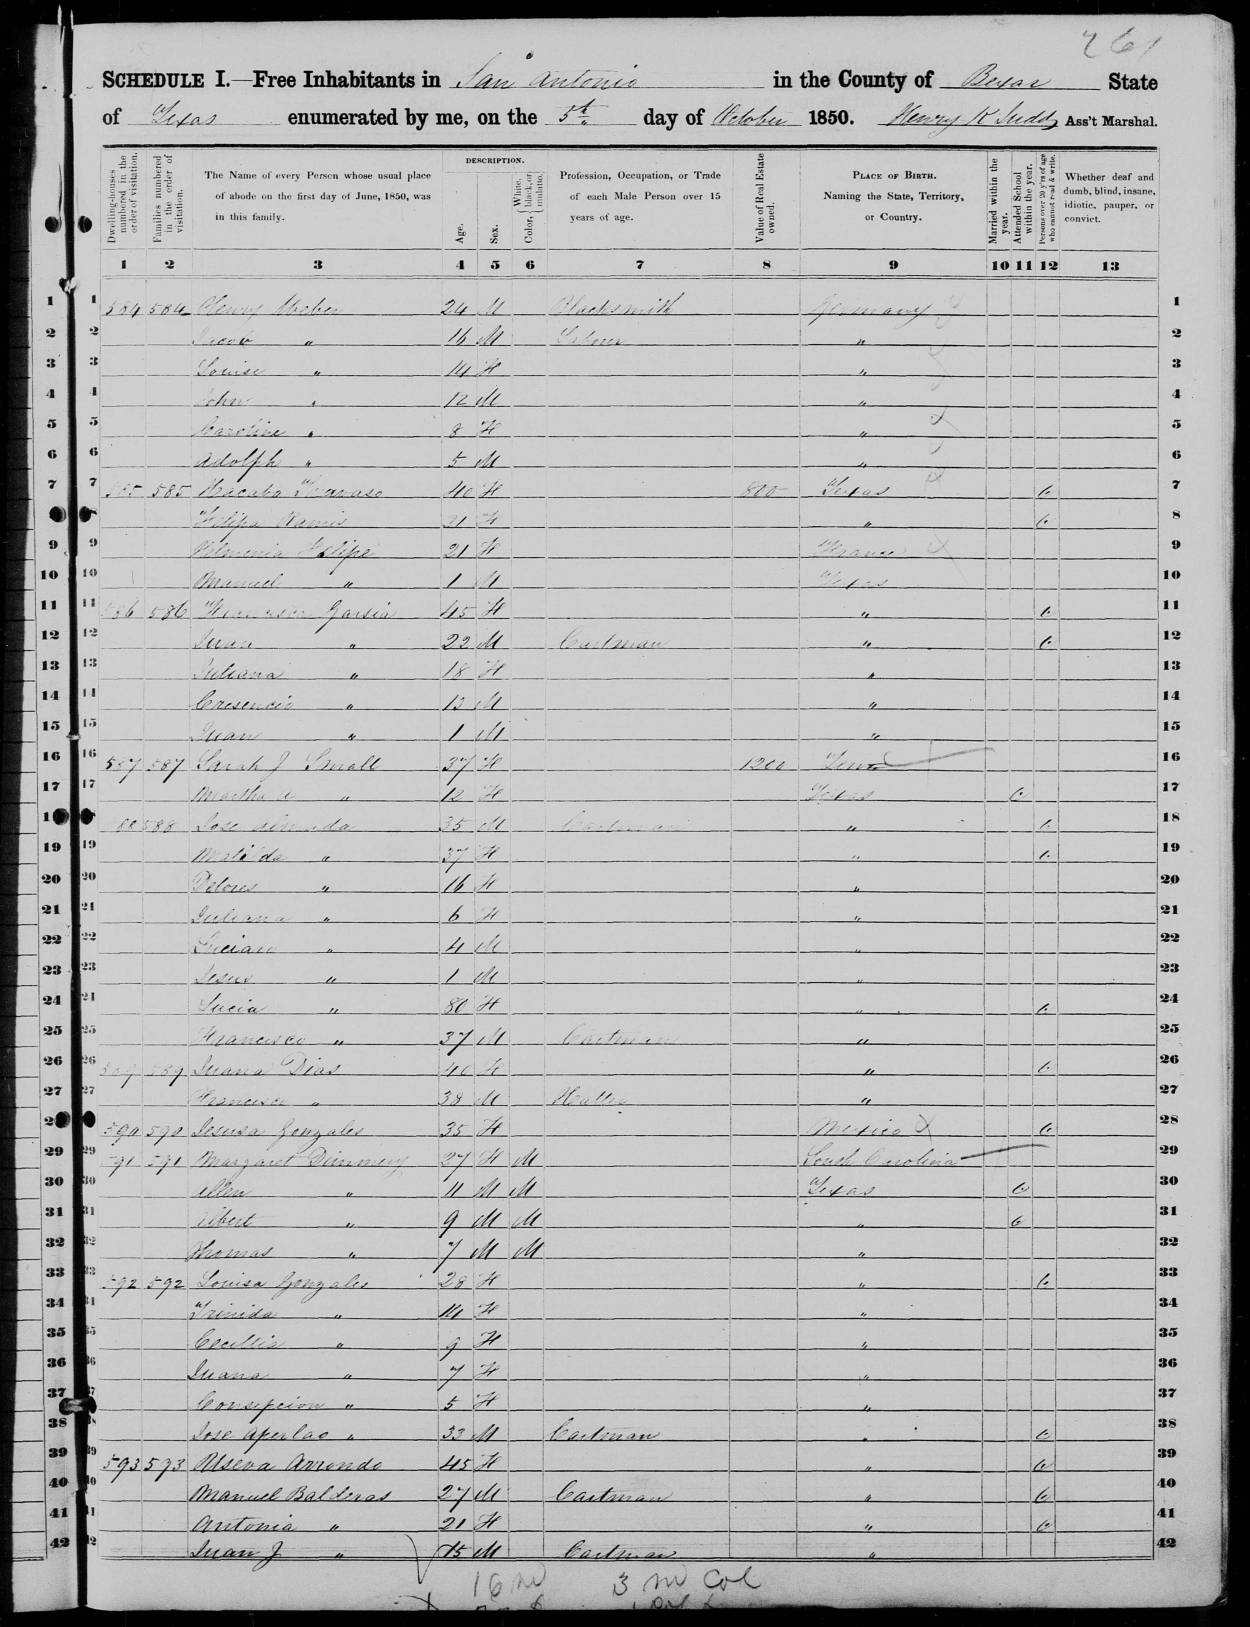 261
SCHEDULE I.—Free Inhabitants in San Antonio in the County of Bexar State
of Texas enumerated by me, on the 5th day of October 1850. Henry K Judd Ass't Marshal.
Dwelling-houses numbered in the order of visitation.
Families numbered in the order of visitation.
The Name of every Person whose usual place of abode on the first day of June, 1850, was in this family.
DESCRIPTION.
Age.
Sex.
Color, { White, black, or mulatto.
Profession, Occupation, or Trade of each Male Person over 15 years of age.
Value of Real Estate owned.
PLACE OF BIRTH. Naming the State, Territory, or Country.
Married within the year.
Attended School within the year.
Persons over 20 y'rs of age who cannot read & write.
Whether deaf and dumb, blind, insane, idiotic, pauper, or convict.
1 2 3 4 5 6 7 8 9 10 11 12 13
1 584 584 Henry Weber 24 M Blacksmith Germany 1
2 Jacob " 16 M Labour " 2
3 Louise " 14 F " 3
4 John " 12 M " 4
5 Caroline " 8 F " 5
6 Adolph " 5 M " 6
7 585 585 40 F 800 Texas 7
8 Felipa Ramis 21 F " 8
9 Felipe 21 F France 9
10 Manuel " 1 M Texas 10
11 586 586 Garsia 45 F " 11
12 Juan " 22 M Cartman " 12
13 Juliana " 18 F " 13
14 Cresencio " 13 M " 14
15 Juan " 1 M " 15
16 587 587 Sarah J Small 37 F 1200 Tenn 16
17 Martha " 12 F Texas 17
18 588 588 Jose Almeda 35 M Cartman " 18
19 Matilda " 37 F " 19
20 Delores " 16 F " 20
21 Juliana " 6 F " 21
22 Lucian " 4 M " 22
23 Jesus " 1 M " 23
24 Lucia " 80 F " 24
25 Francisco " 37 M Cartman " 25
26 589 589 Juana Dias 40 F " 26
27 Francisco " 38 M Hatter " 27
28 590 590 Jesusa Gonzales 35 F Mexico 28
29 591 591 Margaret 27 F M South Carolina 29
30 Allen " 11 M M Texas 30
31 Albert " 9 M M " 31
32 Thomas " 7 M M " 32
33 592 592 Louisa Gonzales 28 F " 33
34 Trinida " 14 F " 34
35 Cecillia " 9 F " 35
36 Juana " 7 F " 36
37 Consepcion " 5 F " 37
38 Jose " 33 M Cartman " 38
39 593 593 Arrondo 45 F " 39
40 Manuel Balderas 27 M Cartman " 40
41 Antonia " 21 F " 41
42 Juan J " 15 M Cartman " 42
16 m 3 m Col